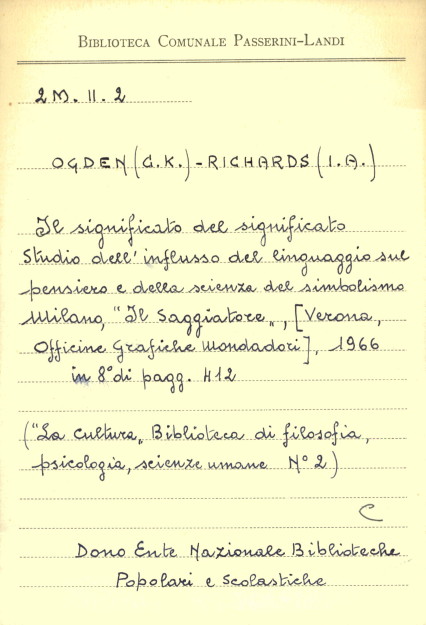 BIBLIOTECA COMUNALE PASSERINI-LANDI
2 M. II. 2
OGDEN (C.K.) - RICHARDS (I.A.)
Il significato del significato
Studio dell'influsso del linguaggio sul
pensiero e della scienza del simbolismo
Milano, "Il Saggiatore„, [Verona,
Officine Grafiche Mondadori], 1966
in 8° di pagg. 412
("La cultura„ Biblioteca di filosofia,
psicologia, scienze umane N° 2)
C
Dono Ente Nazionale Biblioteche
Popolari e Scolastiche